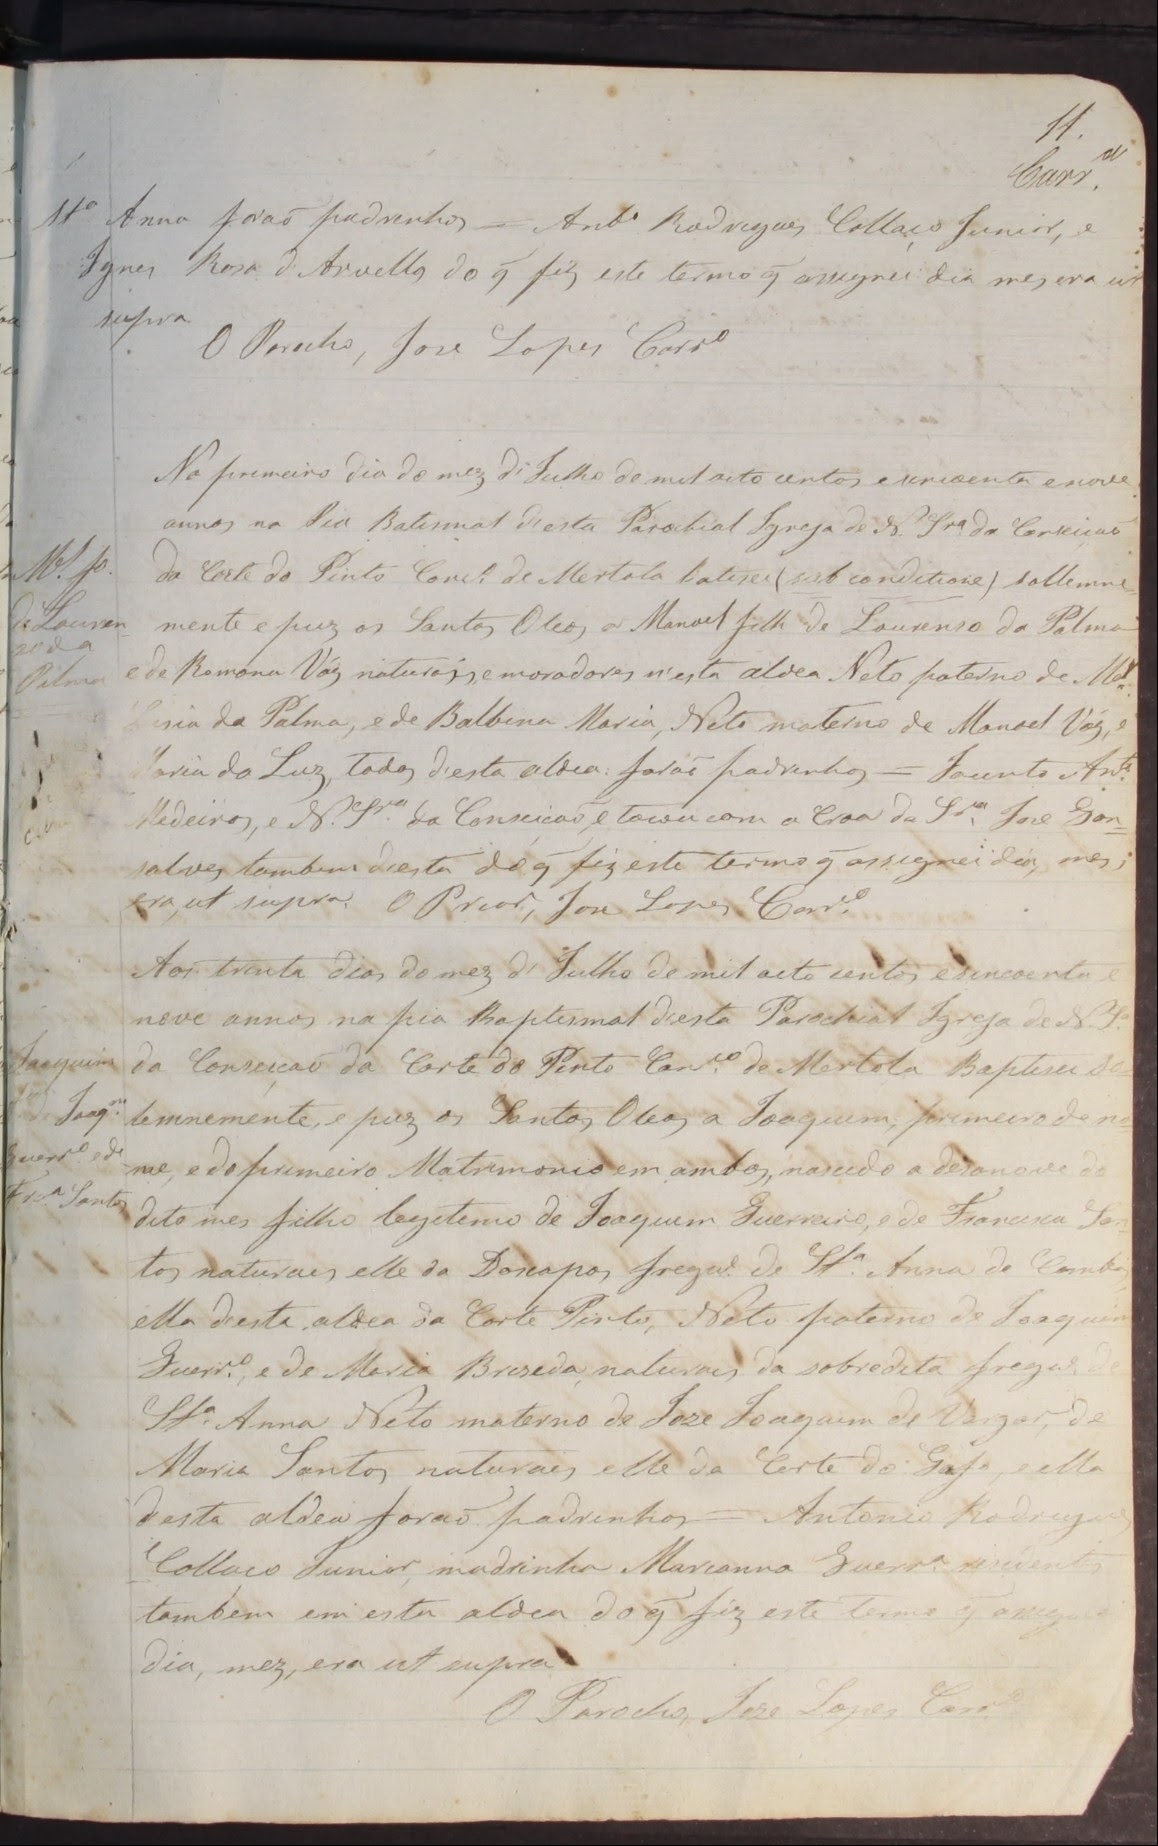 11.
Carr.º
Stª Anna forão padrinhos = Antº Rodrigues Collaço Junior, e
Ignes Rosa d'Arvella do q̃ fiz este termo q̃ assignei dia mes era ut
supra
O Parocho, Jose Lopes Carrº
No primeiro dia do mez di Julho de mil oito centos e sincoenta e nove
annos na Pia Batismal d'esta Parochial Igreja de N. Srª da Conseicaõ
Mel. fo.
da Corte do Pinto Conc.º de Mertola batizei (sub conditione) sollemne-
de Louren-
mente e puz os Santos Oleos a Manoel filh de Lourenso da Palma
so da
Palma
e de Romana Váz naturais, e moradores n'esta aldea Neto paterno de Mel.
da Palma, e de Balbina Maria, Neto materno de Manoel Váz, e
Maria da Luz, todos d'esta aldea: foraõ padrinhos = Jacinto Antº
Medeiros, e N. Srª da Conseicaõ, e tocou com a Croa da Srª Jose Gon-
salves tambem d'esta do q̃ fiz este termo q̃ assignei dia, mes,
era, ut supra. O Prior, Jose Lopes Carrº
Aos trinta dias do mez di Julho de mil oito centos e sincoenta e
nove annos na pia Baptismal d'esta Parochial Igreja de N. Sª
Joaquim
da Conseicaõ da Corte do Pinto Concº de Mertola Baptisei So-
Joaqm
lemnemente, e puz os Santos Oleos a Joaquim, primeiro do no
Guerrº e de
me, e do primeiro Matrimonio em ambos, nascido a desanove do
Frcª Santos
dito mes filho legitimo de Joaquim Guerreiro, e de Francisca San-
tos naturaes elle da fregª de Stª Anna de Cambas,
ella d'esta aldea da Corte Pinto, Neto paterno de Joaquim
Guerrº, e de Maria Brizeda, naturais da sobredita fregª de
Stª Anna Neto materno de Joze Joaquim de Vargas, de
Maria Santos naturaes elle da Corte do Gafo, e ella
d'esta aldea foraõ padrinhos = Antonio Rodrigues
Collaço Junior, madrinha Marianna Guerrª rezidentes
tambem em esta aldea do q̃ fiz este termo q̃ assignei
dia, mez, era ut supra
O Parocho, Joze Lopes Carrº